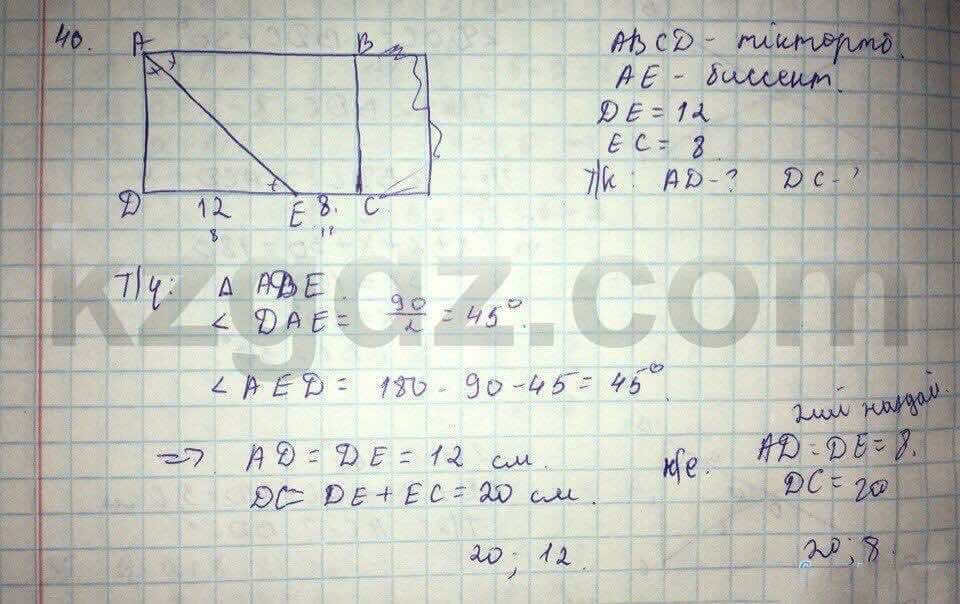 40.
A B
D 12 E 8. C
8 12
ABCD - тіктөртб.
AE - биссект.
DE = 12
EC = 8
Т/к: AD-? DC-?
Т/ү: Δ ADE.
< DAE = 90/2 = 45°.
< AED = 180 - 90 - 45 = 45°
=> AD = DE = 12 см.
DC = DE + EC = 20 см.
20; 12.
н/е.
AD = DE = 8.
DC = 20
20; 8.
kzgdz.com